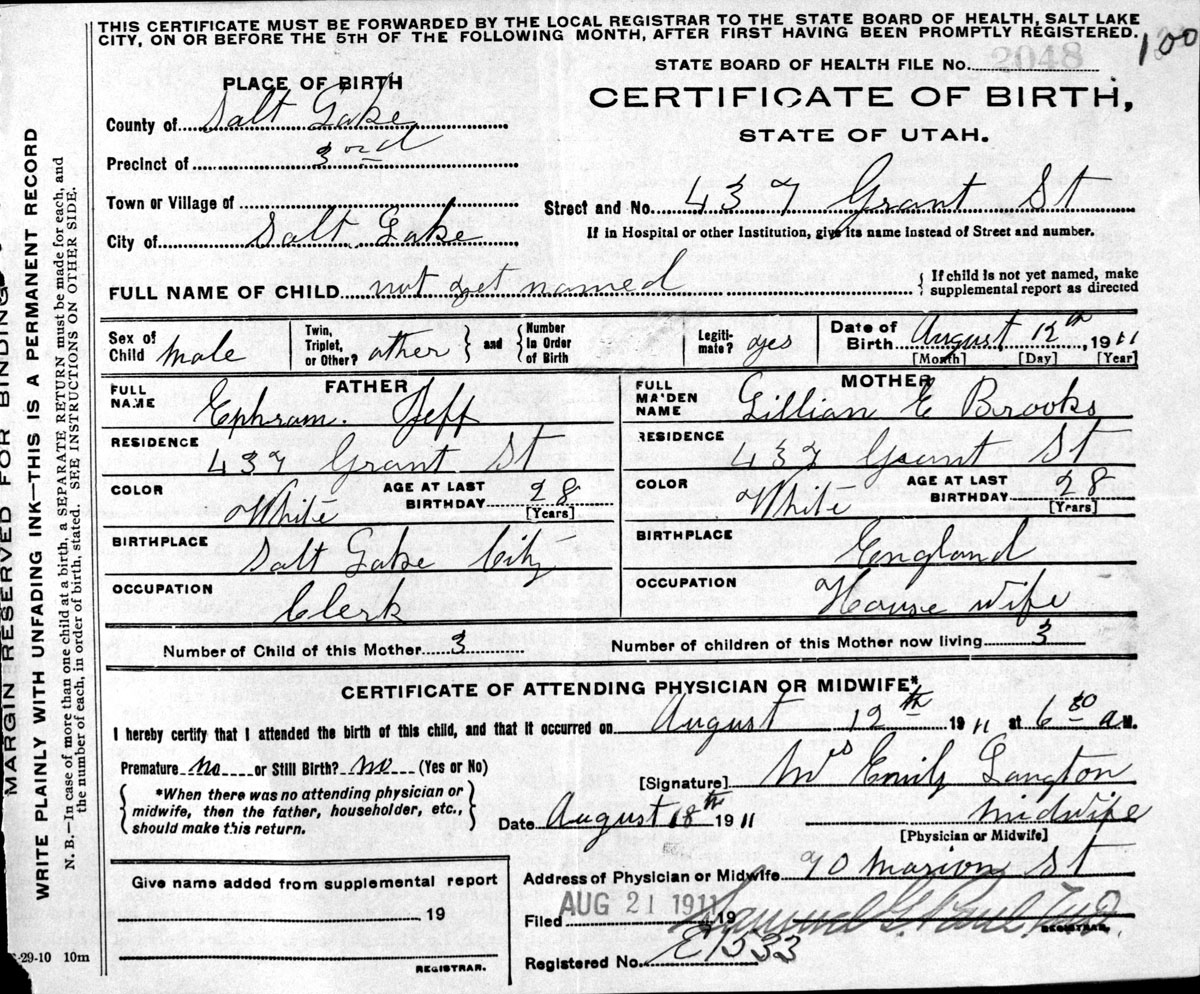 THIS CERTIFICATE MUST BE FORWARDED BY THE LOCAL REGISTRAR TO THE STATE BOARD OF HEALTH, SALT LAKE
CITY, ON OR BEFORE THE 5TH OF THE FOLLOWING MONTH, AFTER FIRST HAVING BEEN PROMPTLY REGISTERED.
100
STATE BOARD OF HEALTH FILE No. 2048
CERTIFICATE OF BIRTH,
STATE OF UTAH.
PLACE OF BIRTH
County of Salt Lake
Precinct of 3rd
Town or Village of
City of Salt Lake
Street and No. 437 Grant St
If in Hospital or other Institution, give its name instead of Street and number.
FULL NAME OF CHILD not yet named
{ If child is not yet named, make
supplemental report as directed
Sex of Child male
Twin, Triplet, or Other? other } and { Number In Order of Birth
Legiti-mate? yes
Date of Birth August 12th, 1911
[Month] [Day] [Year]
FATHER
FULL NAME Ephram Jeff
RESIDENCE 437 Grant St
COLOR White
AGE AT LAST BIRTHDAY 28
[Years]
BIRTHPLACE Salt Lake City
OCCUPATION Clerk
MOTHER
FULL MAIDEN NAME Lillian E Brooks
RESIDENCE 437 Grant St
COLOR White
AGE AT LAST BIRTHDAY 28
[Years]
BIRTHPLACE England
OCCUPATION House wife
Number of Child of this Mother 3
Number of children of this Mother now living 3
CERTIFICATE OF ATTENDING PHYSICIAN OR MIDWIFE*
I hereby certify that I attended the birth of this child, and that it occurred on August 12th 1911 at 6 30 a M.
Premature no or Still Birth? no (Yes or No)
{ *When there was no attending physician or
midwife, then the father, householder, etc.,
should make this return. }
[Signature] Mrs Emily Langton
Date August 18th 1911
midwife
[Physician or Midwife]
Address of Physician or Midwife 70 Marion St
Give name added from supplemental report
19
REGISTRAR.
Filed AUG 21 1911 19
Samuel G. Paul
REGISTRAR.
Registered No. E1533
-29-10 10m
MARGIN RESERVED FOR BINDING
WRITE PLAINLY WITH UNFADING INK—THIS IS A PERMANENT RECORD
N. B.—In case of more than one child at a birth, a SEPARATE RETURN must be made for each, and
the number of each, in order of birth, stated. SEE INSTRUCTIONS ON OTHER SIDE.